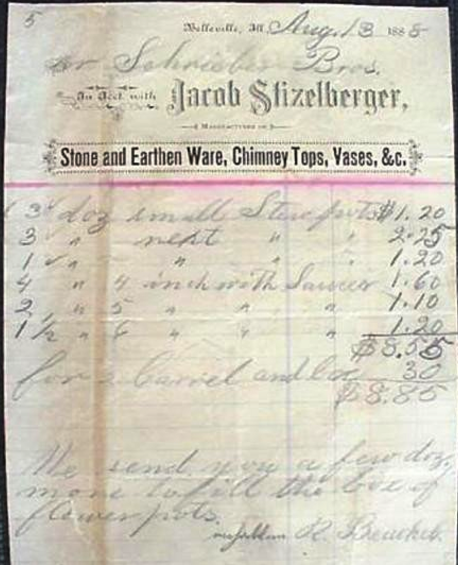 5
Belleville, Ill. Aug. 13 1885
Schrieber Bros.
In Acct. with Jacob Stizelberger,
MANUFACTURER OF
Stone and Earthen Ware, Chimney Tops, Vases, &c.
3 doz small Stew pots $1.20
3 " next " " 2.25
1 " " " " 1.20
4 " 4 inch with Saucer 1.60
2 " 5 " " " 1.10
1½ " 6 " " " 1.20
$8.55
for 2 barrel and box 30
$8.85
We send you a few doz.
more to fill the box of
flower pots.
R.